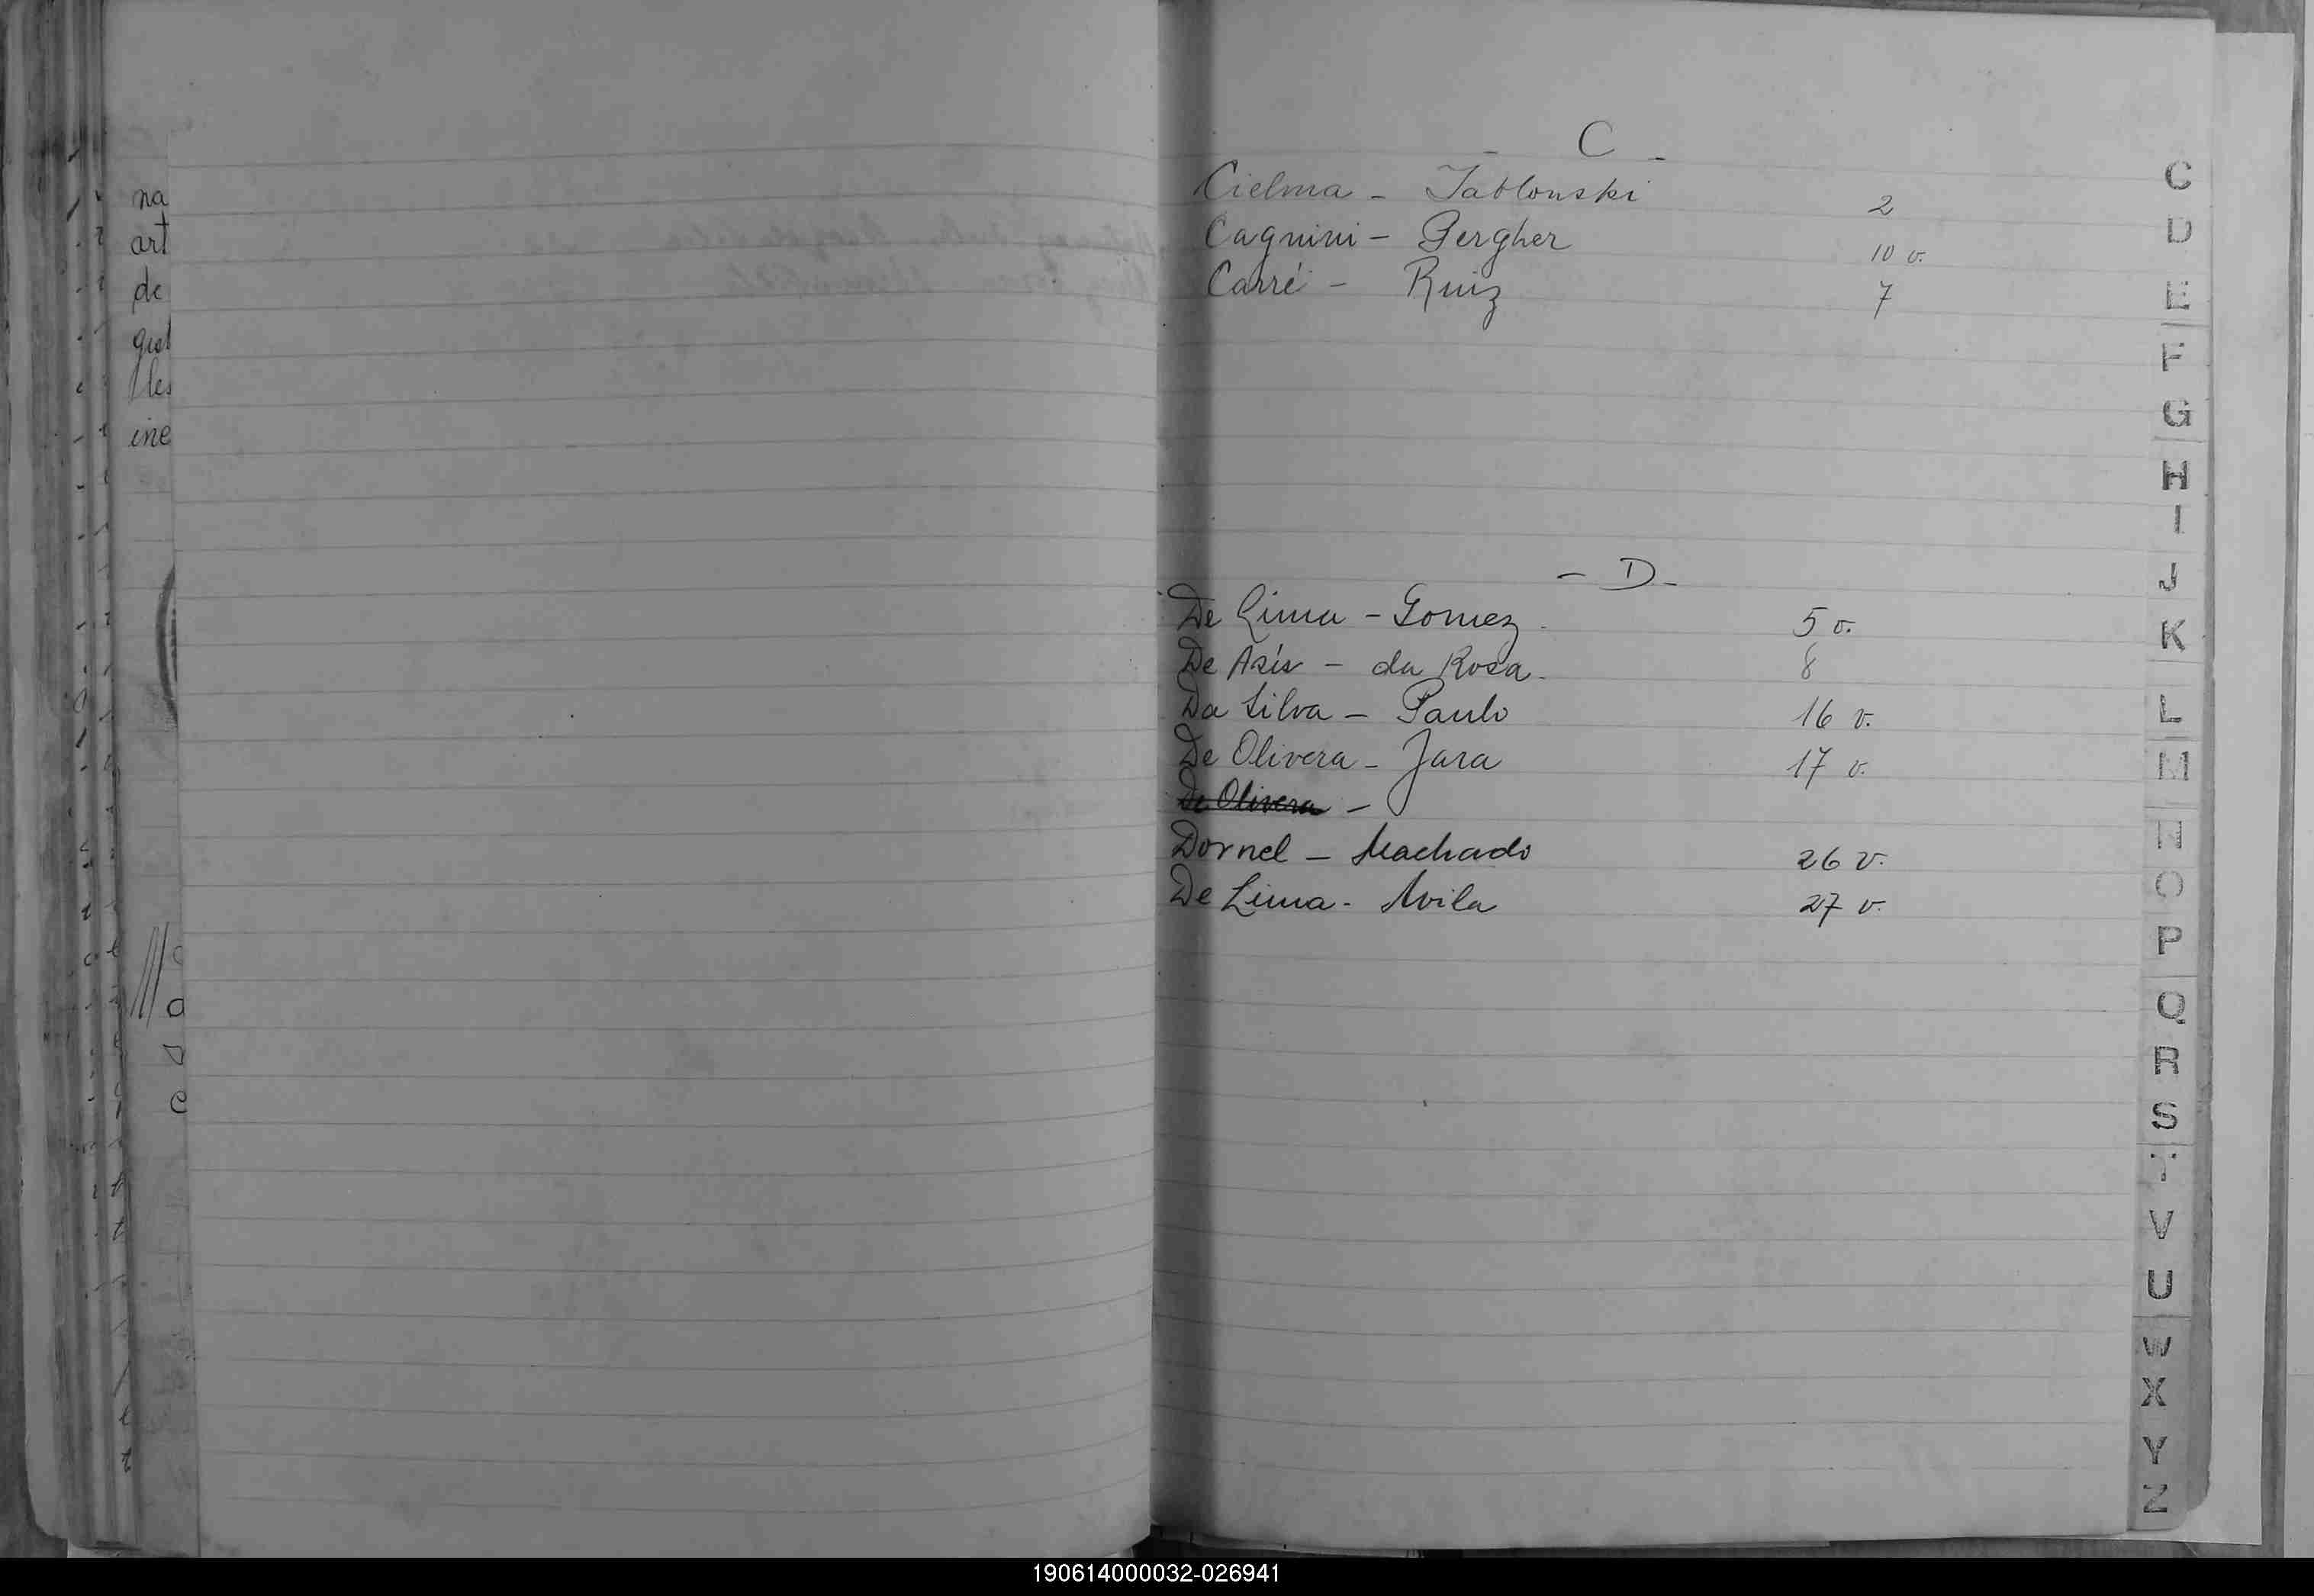 na
art
de
les
ine
- C -
Cielma - Jablonski 2
Cagnini - Pergher 10 v.
Carré - Ruiz 7
- D -
De Lima - Gomez. 5 v.
De Asís - da Rosa. 8
Da Silva - Paulo 16 v.
De Olivera - Jara 17 v.
De Olivera -
Dornel - Machado 26 v.
De Lima - Avila 27 v.
C
D
E
F
G
H
I
J
K
L
M
N
O
P
Q
R
S
T
V
U
W
X
Y
Z
190614000032-026941